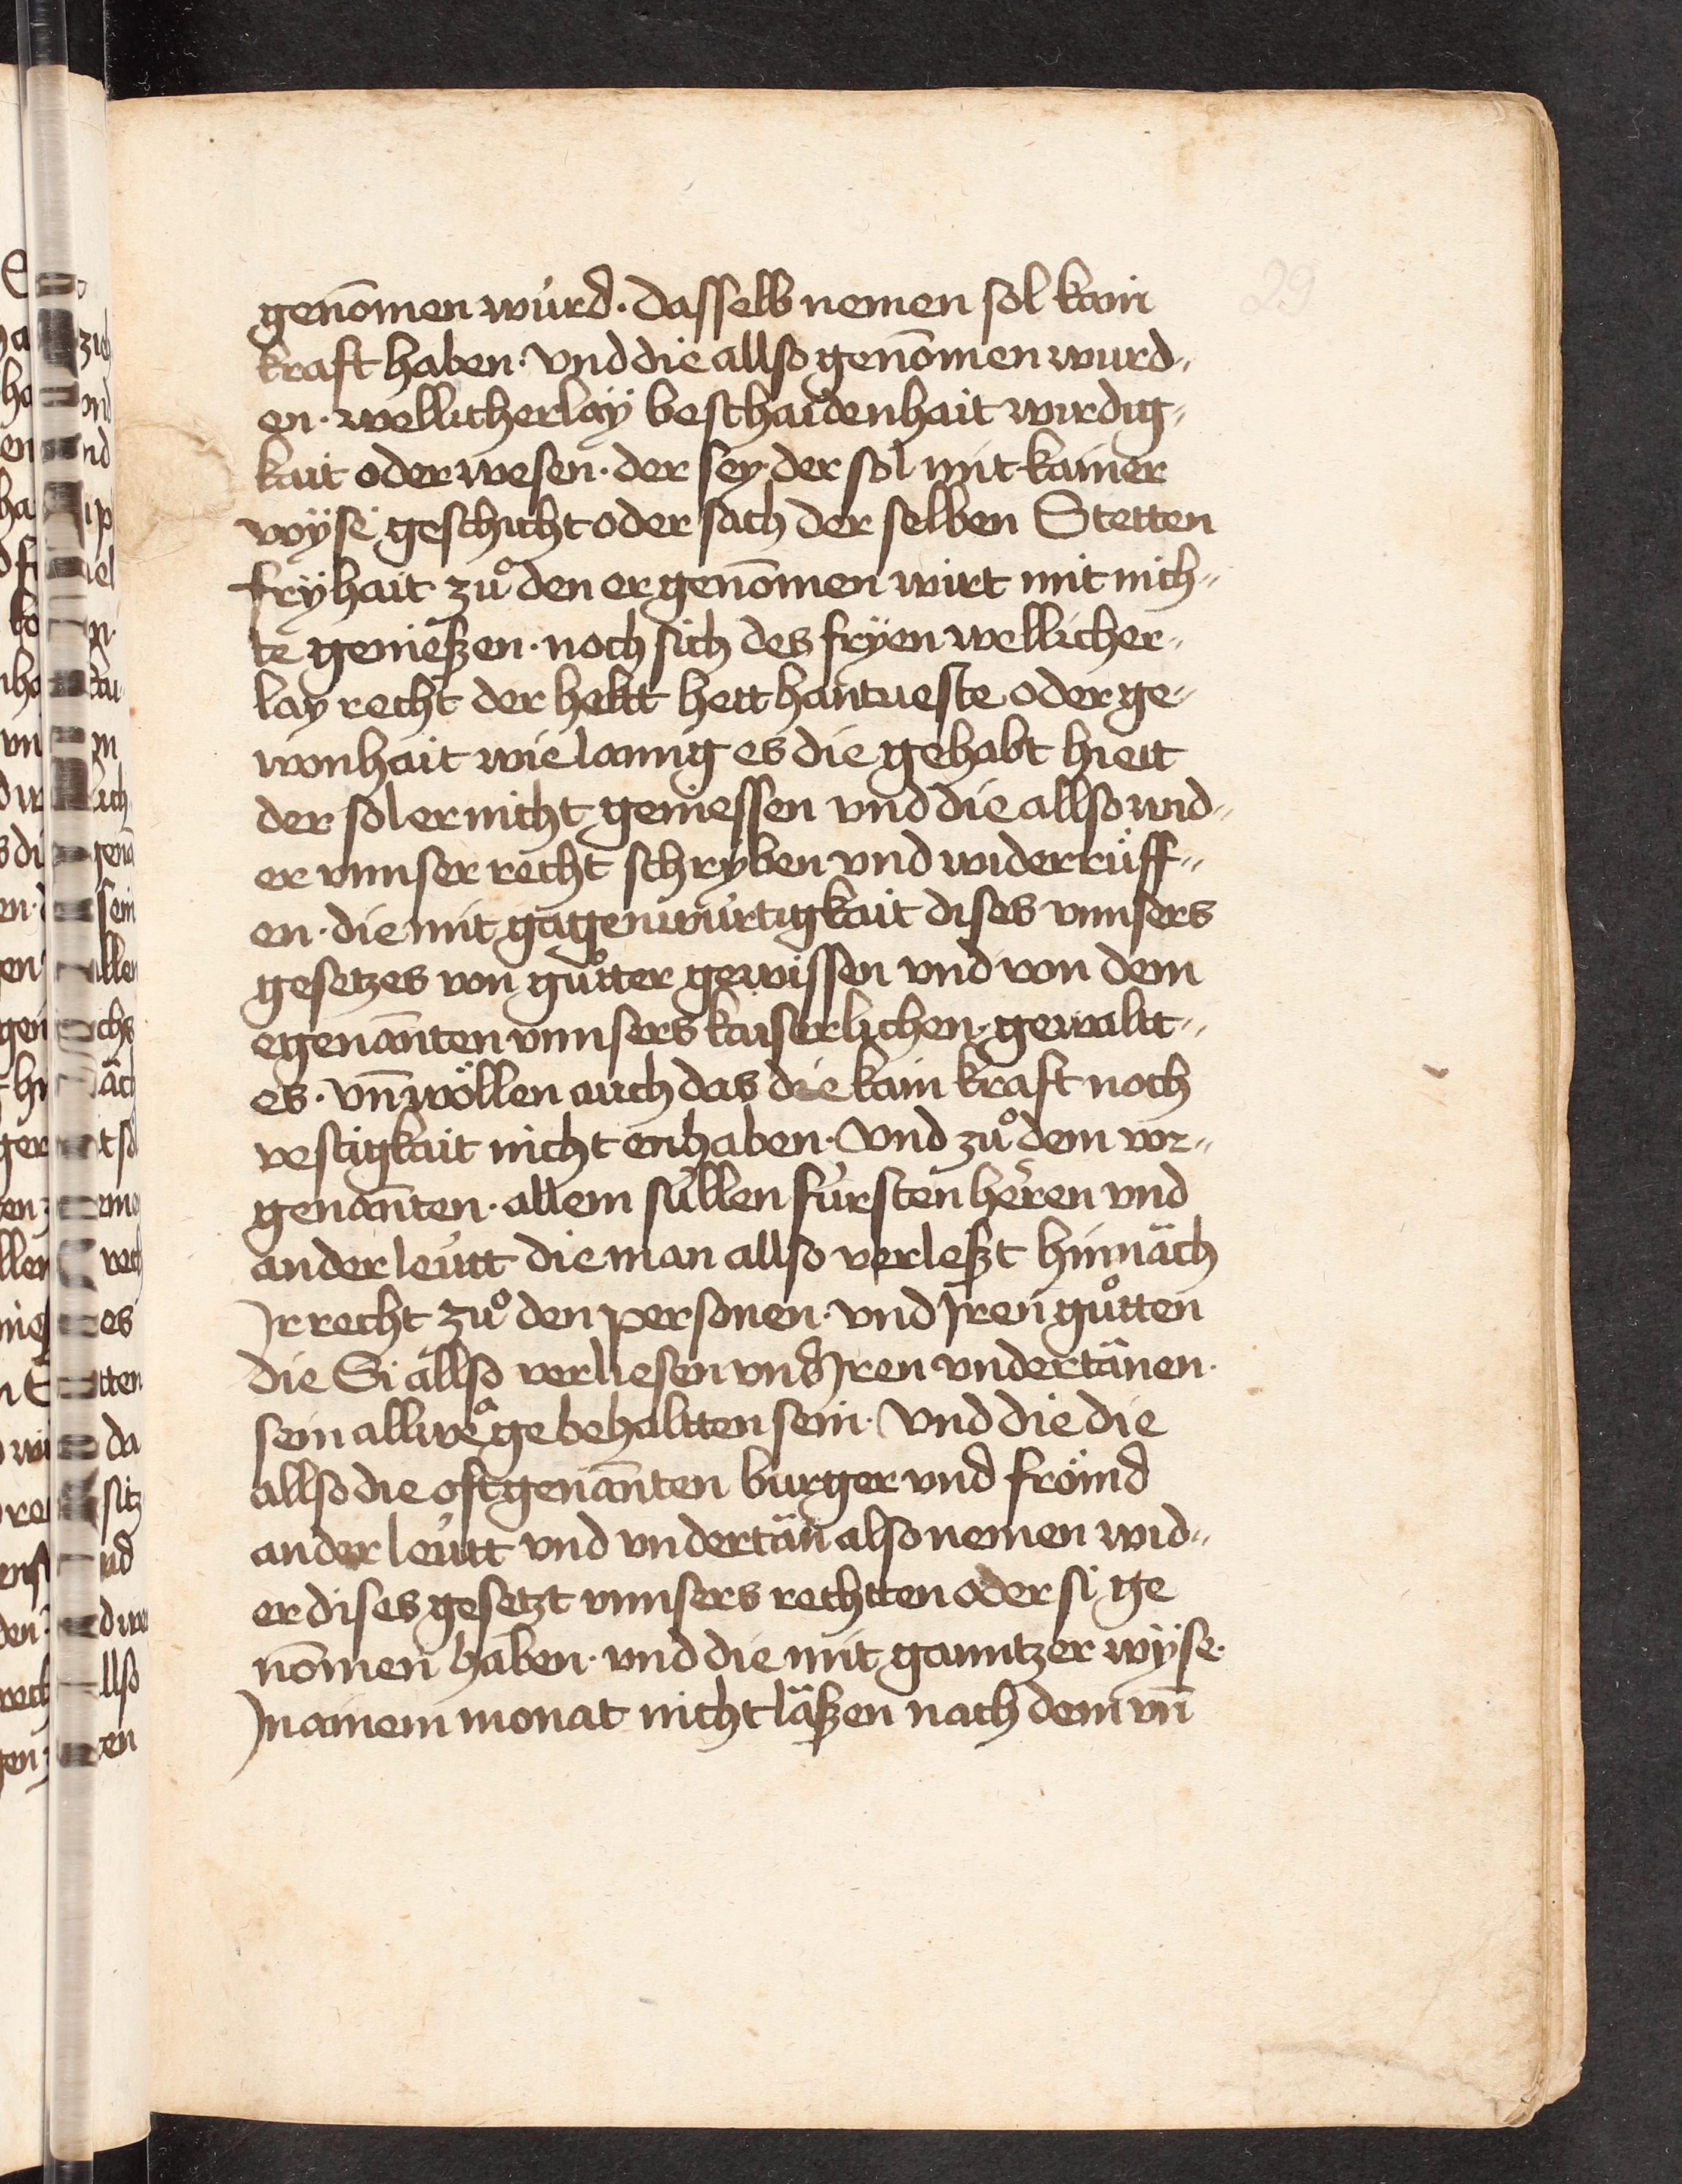 29
genōmen würd · dasselb nemen sol kain
kraft haben · vnd die allso genōmen wurd„
en · wellicherlaÿ beschaidenhait wirdig„
kait oder wesen · der sey · der sol mit kainer
wÿse geschicht oder sach der selben Stetten
frÿhait zuͦ den er genōmen wirt mit nich„
te genießen · noch sich des frÿen wellicher„
lay recht der heltt hett hantueste oder ge„
wonhait wie lanng es die gehabt hiett
der sol er nicht geniessen vnd die allso wid„
er vnnser recht schrÿben vnd widerrüff„
en · die mit gagenwürtigkait dises vnnsers
gesetzes von guͦtter gewissen vnd von dem
egenan̄ten vnnsers kaiserlichen gewaltt„
es · vn̄ wöllen auch das die kain kraft noch
vestigkait nicht enhaben · Vnd zuͦ dem vor„
genan̄ten · allem süllen fürsten heren vnd
ander leütt die man allso verleßt hinnäch
Ir recht zuͦ den personen · vnd Iren guͦtten
die Si allso verliesen vnd Iren vndertänen ·
sein allwege behaltten sein · Vnd die die
allso die oftgenan̄ten burger vnd fröind
ander leütt vnd vndertän also nemen wid„
er dises gesetzt vnnsers rechtten oder si ge
nōmen haben · vnd die mit ganntzer wÿse ·
In ainem monat nicht läßen nach dem vn̄